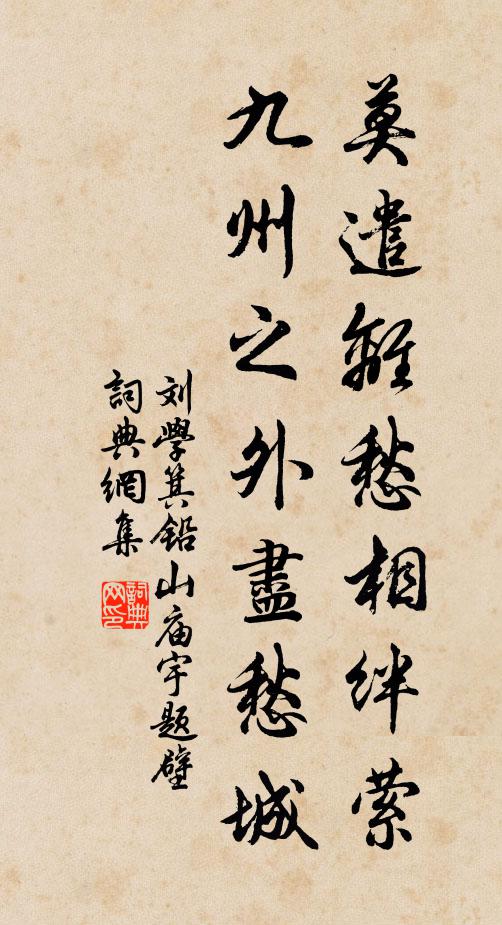 莫遣離愁相絆縈
九州之外盡愁城
刘學箕鉛山庙宇题壁
詞典網集
詞典网印